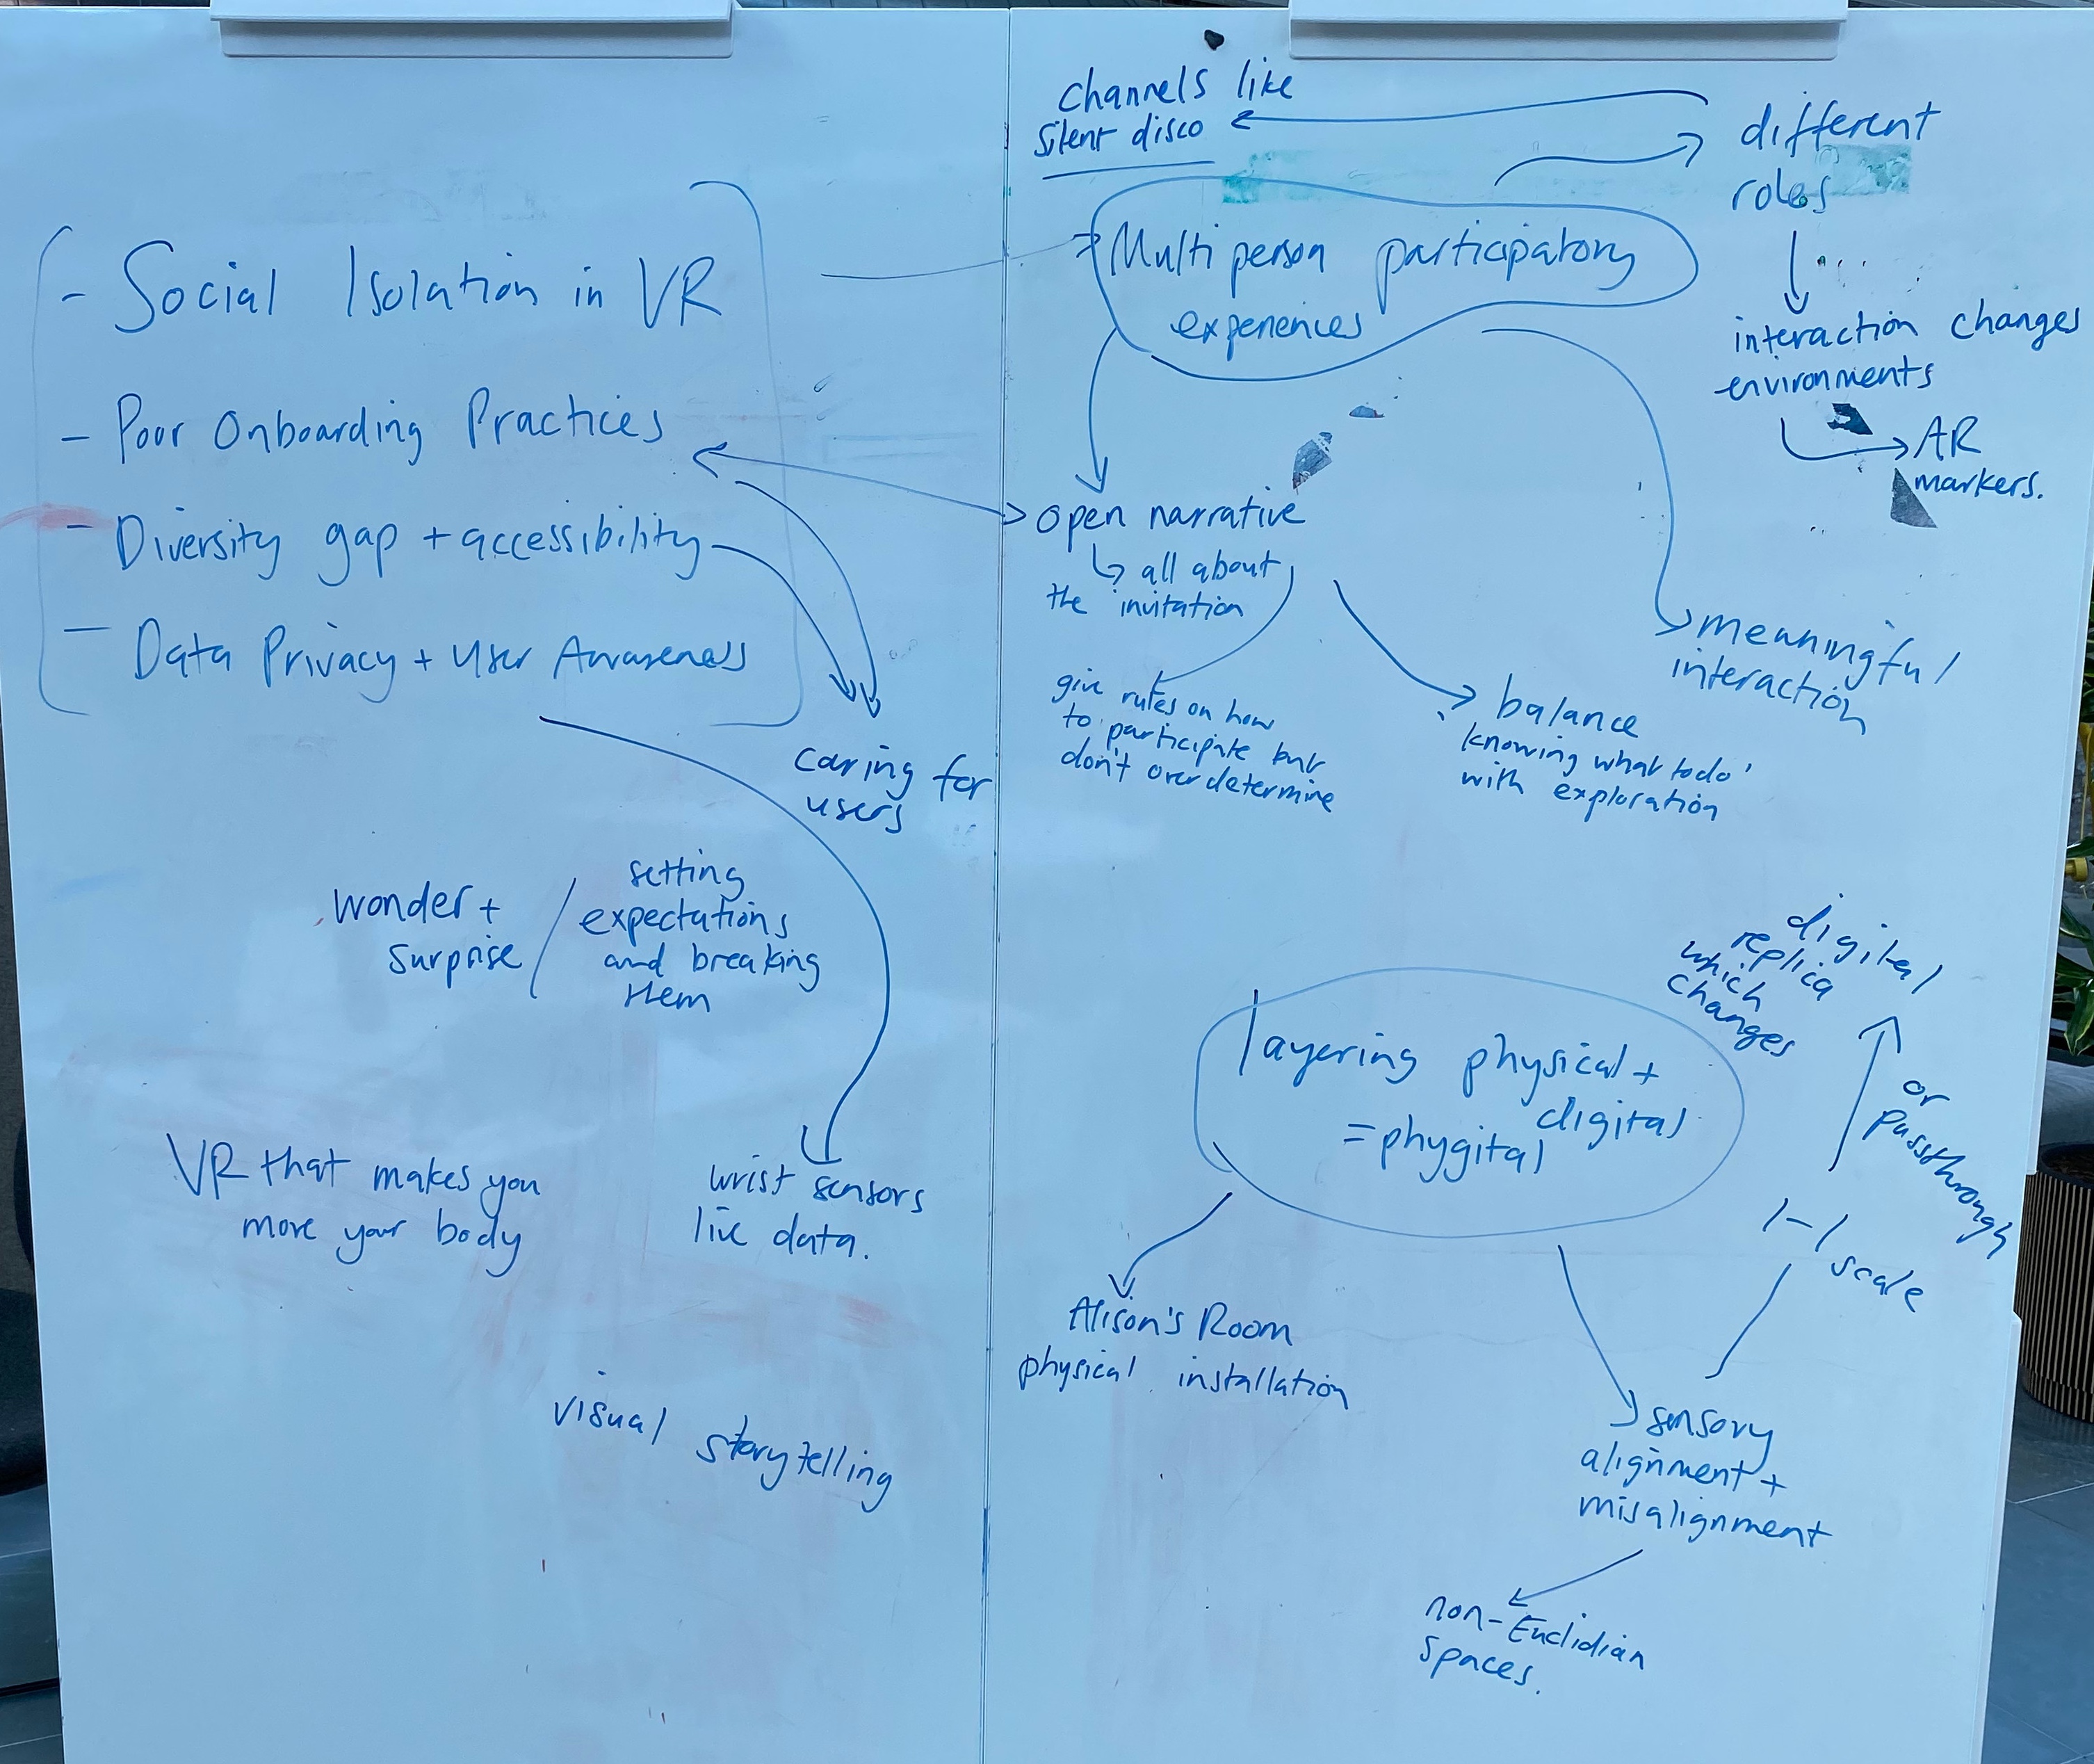 - Social Isolation in VR
- Poor Onboarding Practices
- Diversity gap + accessibility
- Data Privacy + User Awareness
caring for
users
wonder +
surprise /
setting
expectations
and breaking
them
VR that makes you
move your body
wrist sensors
live data.
visual storytelling
channels like
silent disco
different
roles
Multi person participatory
experiences
interaction changes
environments
AR
markers.
open narrative
all about
the invitation
give rules on how
to participate but
don't over determine
balance
'knowing what to do'
with exploration
meaningful
interaction
digital
replica
which
changes
or
passthrough
layering physical +
digital
= phygital
1-1
scale
Alison's Room
physical installation
sensory
alignment +
misalignment
non-Euclidian
spaces.